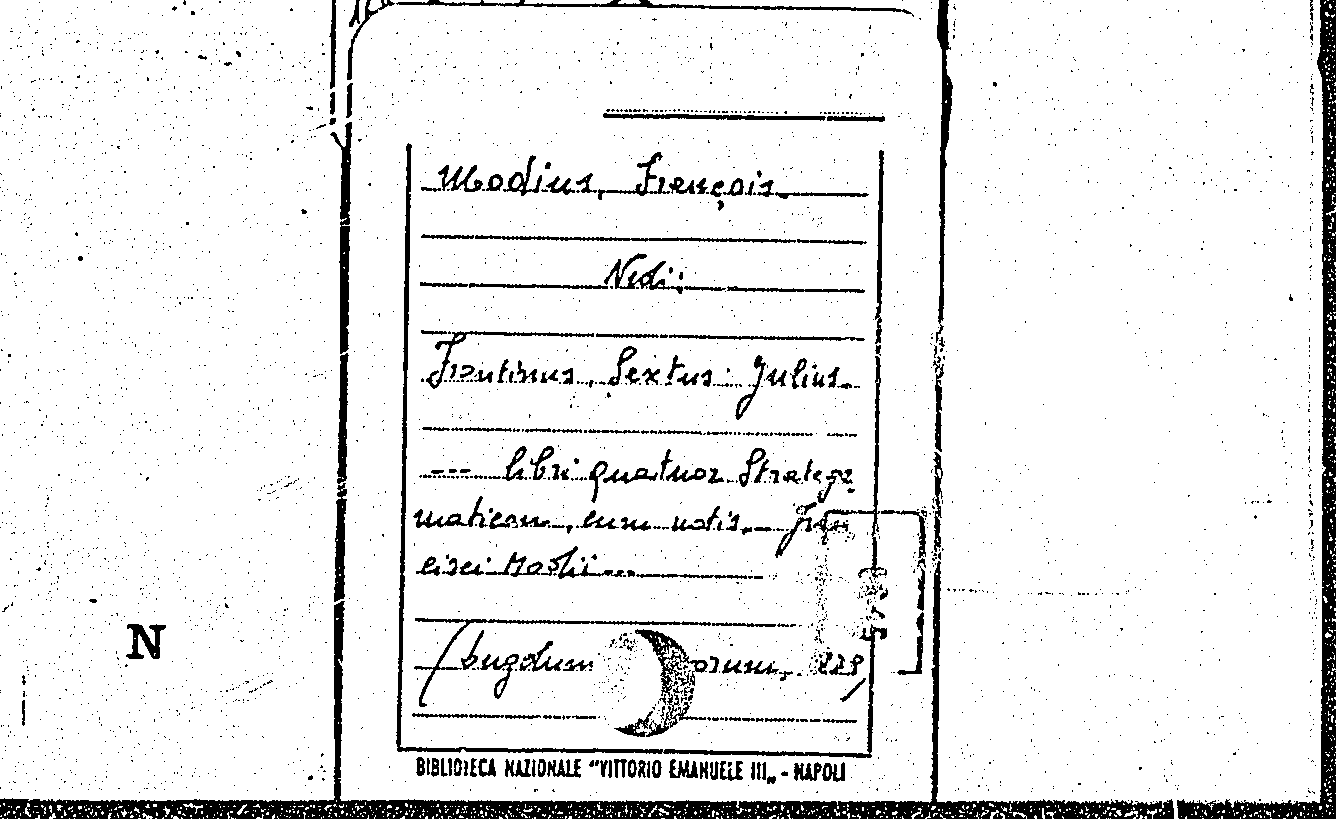 Modius, François.
Vedi:
Frontinus, Sextus Julius.
--- libri quatuor Stratege
maticon, cum notis. Fran
cisci Modii ...
N
(Lugduni orum,
BIBLIOTECA NAZIONALE "VITTORIO EMANUELE III„ - NAPOLI